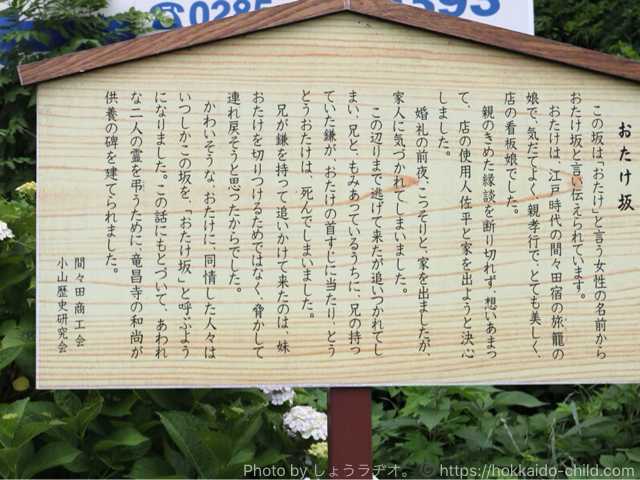 0285
1593
おたけ坂
この坂は「おたけ」と言う女性の名前から
おたけ坂と言い伝えられています。
おたけは、江戸時代の間々田宿の旅籠の
娘で、気だてよく、親孝行で、とても美しく、
店の看板娘でした。
親のきめた縁談を断り切れず、想いあまっ
て、店の使用人佐平と家を出ようと決心
しました。
婚礼の前夜、こっそりと、家を出ましたが、
家人に気づかれてしまいました。
この辺りまで逃げて来たが追いつかれてし
まい、兄と、もみあっているうちに、兄の持っ
ていた鎌が、おたけの首すじに当たり、とう
とうおたけは、死んでしまいました。
兄が鎌を持って追いかけて来たのは、妹
おたけを切りつけるためではなく、脅かして
連れ戻そうと思ったからでした。
かわいそうな、おたけに、同情した人々は
いつしかこの坂を、「おたけ坂」と呼ぶよう
になりました。この話にもとづいて、あわれ
な二人の霊を弔うために、竜昌寺の和尚が
供養の碑を建てられました。
間々田商工会
小山歴史研究会
Photo by しょうラヂオ。 © https://hokkaido-child.com